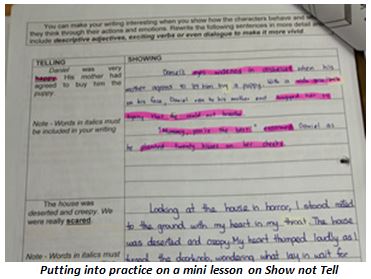 You can make your writing interesting when you show how the characters behave and
they think through their actions and emotions. Rewrite the following sentences in more detail
include descriptive adjectives, exciting verbs or even dialogue to make it more vivid.
TELLING
SHOWING
Daniel was very
happy. His mother had
agreed to buy him the
puppy.
Note - Words in italics must
be included in your writing
Daniel's eyes widened in disbelief when his
mother agreed to buy him a puppy. With a
on his face, Daniel ran to his mother and hugged her so
tightly that she could not breathe.
"Mommy, you're the best!" exclaimed Daniel as
he planted twenty kisses on her cheeks.
The house was
deserted and creepy. We
were really scared.
Note - Words in italics must
Looking at the house in horror, I stood rooted
to the ground with my heart in my throat. The house
was deserted and creepy. My heart thumped loudly as I
the doorknob, wondering what lay in wait for
Putting into practice on a mini lesson on Show not Tell